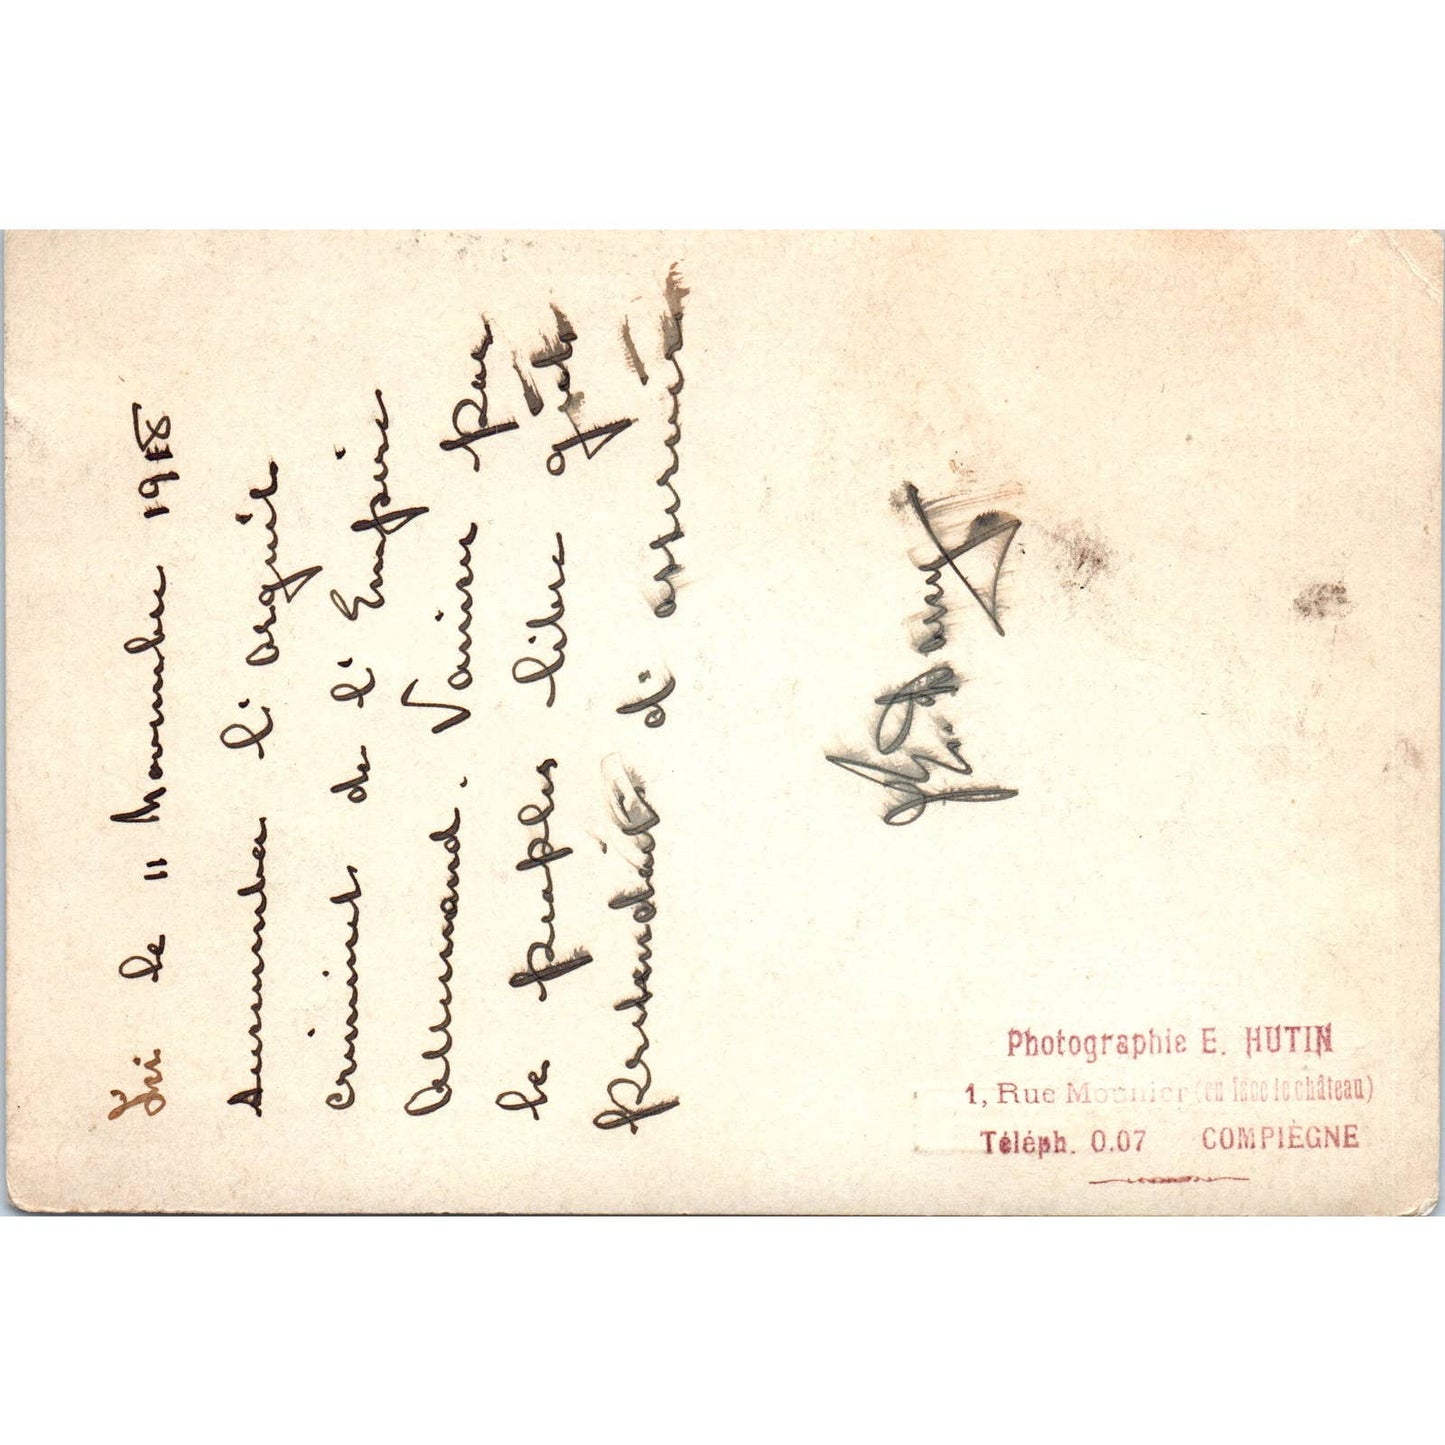 Ici le 11 Novembre 1918
Succomba l'orgueil
criminel de l'Empire
Allemand. Vaincu par
les peuples libres qu'il
prétendait d'asservir
Photographie E. HUTIN
1, Rue Mounier (en face le château)
Téléph. 0.07 COMPIÈGNE